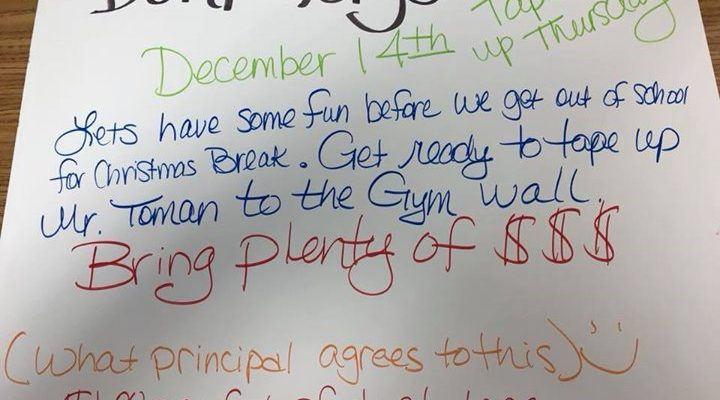 Don't
December 14th up Thursday
Lets have some fun before we get out of school
for Christmas Break. Get ready to tape up
Mr. Toman to the Gym wall.
Bring plenty of $$$
(What principal agrees to this)